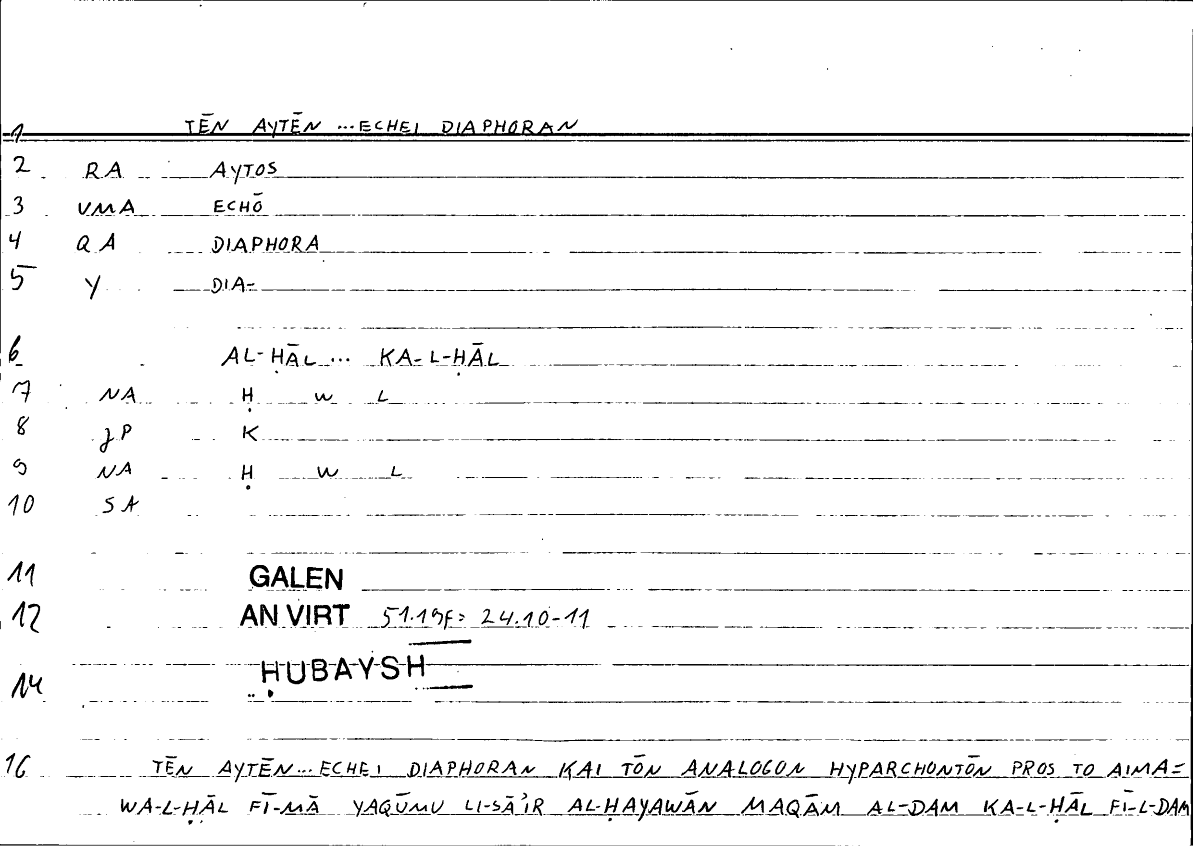 1 TĒN AYTĒN ...ECHEI DIAPHORAN
2 RA AYTOS
3 VMA ECHŌ
4 QA DIAPHORA
5 Y DIA-
6 AL-ḤĀL ... KA-L-ḤĀL
7 NA Ḥ W L
8 JP K
9 NA Ḥ W L
10 SA
11 GALEN
12 AN VIRT 51.19f= 24.10-11
14 ḤUBAYSH
16 TĒN AYTĒN...ECHEI DIAPHORAN KAI TŌN ANALOGON HYPARCHONTŌN PROS TO AIMA=
WA-L-ḤĀL FĪ-MĀ YAQŪMU LI-SĀʾIR AL-ḤAYAWĀN MAQĀM AL-DAM KA-L-ḤĀL FĪ-L-DAM